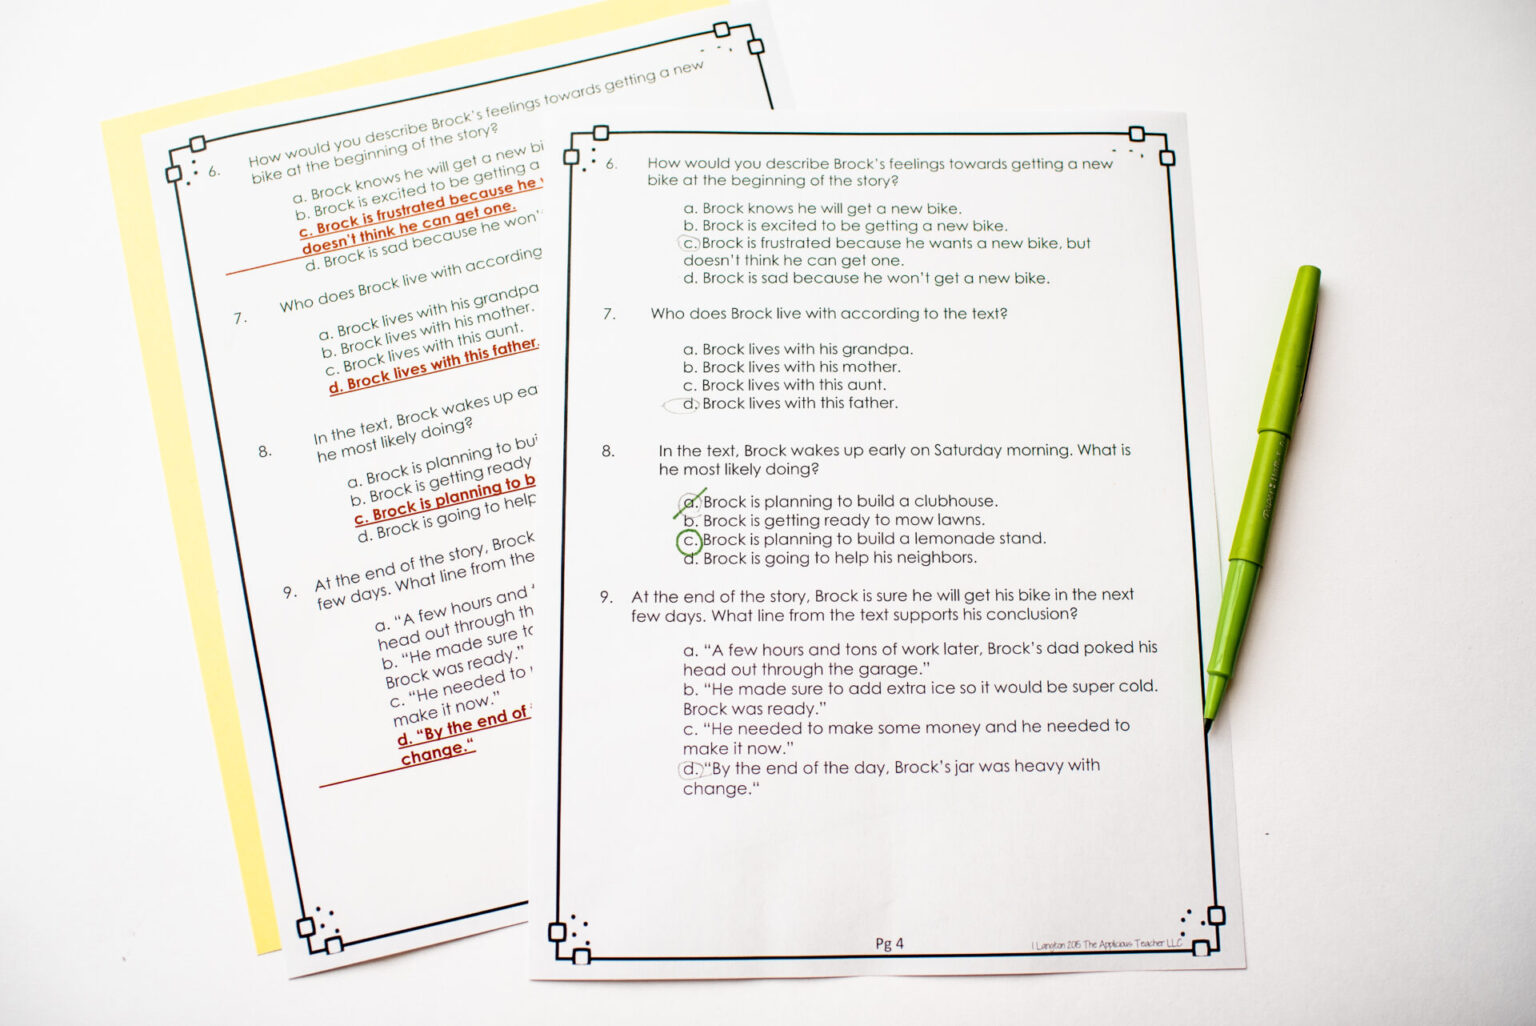 6. How would you describe Brock's feelings towards getting a new
bike at the beginning of the story?
a. Brock knows he will get a new bi
b. Brock is excited to be getting a
c. Brock is frustrated because he
doesn't think he can get one.
d. Brock is sad because he won'
7. Who does Brock live with according
a. Brock lives with his grandpa
b. Brock lives with his mother.
c. Brock lives with this aunt.
d. Brock lives with this father.
8. In the text, Brock wakes up ea
he most likely doing?
a. Brock is planning to bui
b. Brock is getting ready
c. Brock is planning to b
d. Brock is going to help
9. At the end of the story, Brock
few days. What line from the
a. "A few hours and
head out through th
b. "He made sure to
Brock was ready."
c. "He needed to
make it now."
d. "By the end of
change."
6. How would you describe Brock's feelings towards getting a new
bike at the beginning of the story?
a. Brock knows he will get a new bike.
b. Brock is excited to be getting a new bike.
c. Brock is frustrated because he wants a new bike, but
doesn't think he can get one.
d. Brock is sad because he won't get a new bike.
7. Who does Brock live with according to the text?
a. Brock lives with his grandpa.
b. Brock lives with his mother.
c. Brock lives with this aunt.
d. Brock lives with this father.
8. In the text, Brock wakes up early on Saturday morning. What is
he most likely doing?
a. Brock is planning to build a clubhouse.
b. Brock is getting ready to mow lawns.
c. Brock is planning to build a lemonade stand.
d. Brock is going to help his neighbors.
9. At the end of the story, Brock is sure he will get his bike in the next
few days. What line from the text supports his conclusion?
a. "A few hours and tons of work later, Brock's dad poked his
head out through the garage."
b. "He made sure to add extra ice so it would be super cold.
Brock was ready."
c. "He needed to make some money and he needed to
make it now."
d. "By the end of the day, Brock's jar was heavy with
change."
Pg 4
Langton 2015 The Applicious Teacher LLC